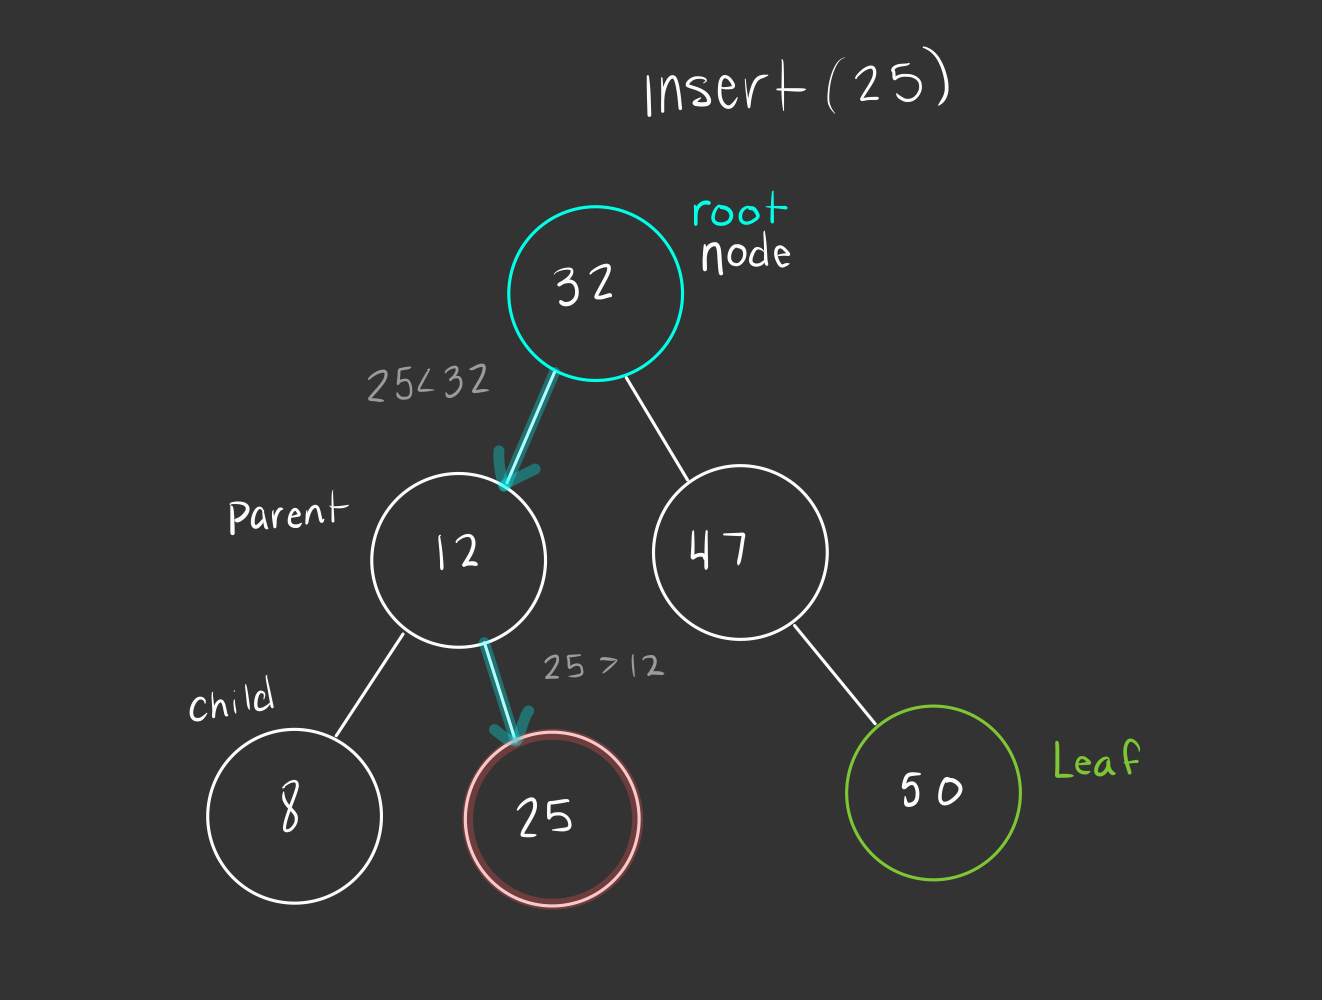 insert (25)
root
node
32
25<32
Parent
12
47
25 >12
child
8
25
50
Leaf